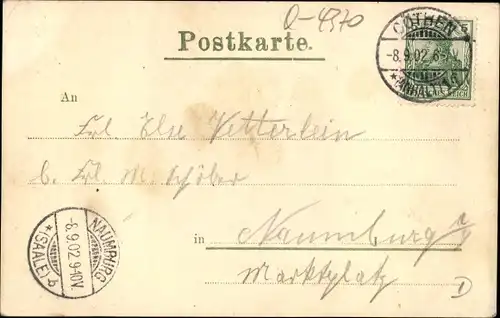 Q-4970
Postkarte.
CÖTHEN
-8.9.02. 6-7
*(ANHALT) 1 G
5
REICH
An
Frl. Else Vetterlein
b. Frl. M. Schöber
in Naumburg a/
Marktplatz
D
NAUMBURG
-8.9.02. 9-10V.
*(SAALE) b